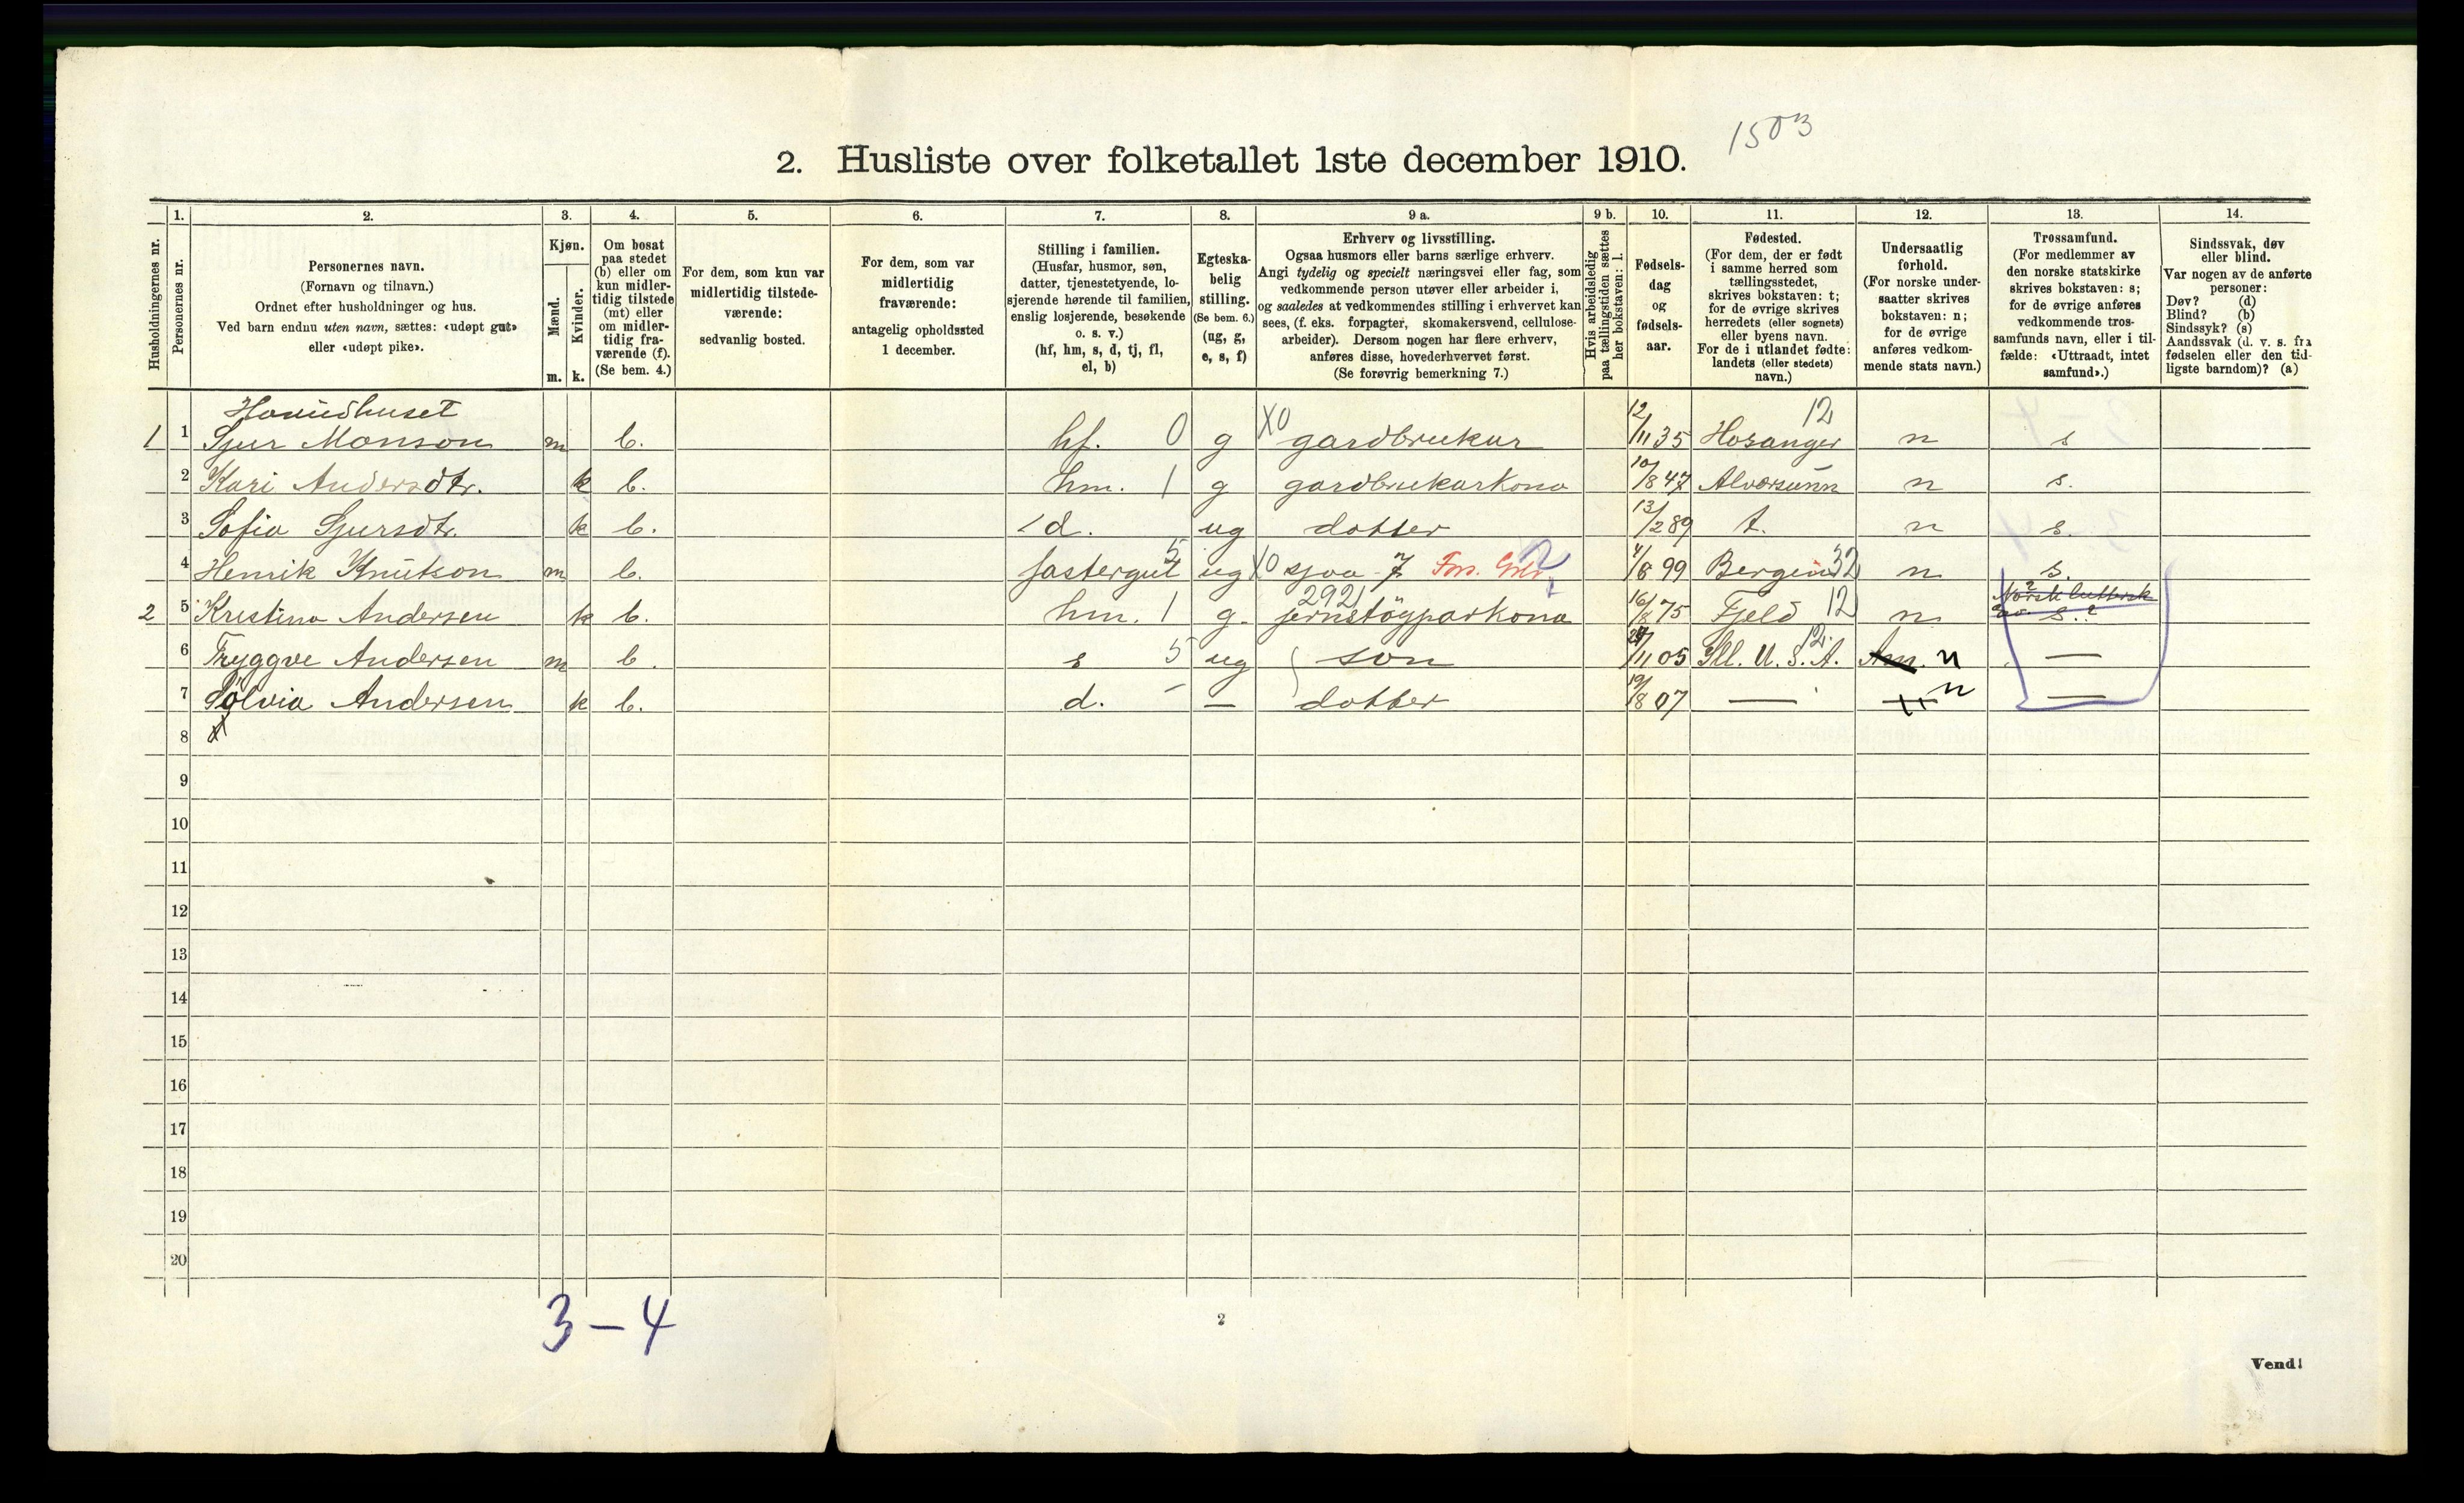 1503
2. Husliste over folketallet 1ste december 1910.
1. 2. 3. 4. 5. 6. 7. 8. 9 a. 9 b. 10. 11. 12. 13. 14.
Husholdningernes nr.
Personernes nr.
Personernes navn.
(Fornavn og tilnavn.)
Ordnet efter husholdninger og hus.
Ved barn endnu uten navn, sættes: «udøpt gut»
eller «udøpt pike».
Kjøn.
Mænd.
Kvinder.
m. k.
Om bosat
paa stedet
(b) eller om
kun midler-
tidig tilstede
(mt) eller
om midler-
tidig fra-
værende (f).
(Se bem. 4.)
For dem, som kun var
midlertidig tilstede-
værende:
sedvanlig bosted.
For dem, som var
midlertidig
fraværende:
antagelig opholdssted
1 december.
Stilling i familien.
(Husfar, husmor, søn,
datter, tjenestetyende, lo-
sjerende hørende til familien,
enslig losjerende, besøkende
o. s. v.)
(hf, hm, s, d, tj, fl,
el, b)
Egteska-
belig
stilling.
(Se bem. 6.)
(ug, g,
e, s, f)
Erhverv og livsstilling.
Ogsaa husmors eller barns særlige erhverv.
Angi tydelig og specielt næringsvei eller fag, som
vedkommende person utøver eller arbeider i,
og saaledes at vedkommendes stilling i erhvervet kan
sees, (f. eks. forpagter, skomakersvend, cellulose-
arbeider). Dersom nogen har flere erhverv,
anføres disse, hovederhvervet først.
(Se forøvrig bemerkning 7.)
Hvis arbeidsledig
paa tællingstiden sættes
her bokstaven: l.
Fødsels-
dag
og
fødsels-
aar.
Fødested.
(For dem, der er født
i samme herred som
tællingsstedet,
skrives bokstaven: t;
for de øvrige skrives
herredets (eller sognets)
eller byens navn.
For de i utlandet fødte:
landets (eller stedets)
navn.)
Undersaatlig
forhold.
(For norske under-
saatter skrives
bokstaven: n;
for de øvrige
anføres vedkom-
mende stats navn.)
Trossamfund.
(For medlemmer av
den norske statskirke
skrives bokstaven: s;
for de øvrige anføres
vedkommende tros-
samfunds navn, eller i til-
fælde: «Uttraadt, intet
samfund».)
Sindssvak, døv
eller blind.
Var nogen av de anførte
personer:
Døv? (d)
Blind? (b)
Sindssyk? (s)
Aandssvak (d. v. s. fra
fødselen eller den tid-
ligste barndom)? (a)
Hovudhuset
1 1 Sjur Monson m b. hf. 0 g X0 gardbrukar 12/11 35 Hosanger 12 n s
2 Kari Andersdtr. k b. hm. 1 g gardbrukarkona 10/8 47 Alversunn n s.
3 Sofia Sjursdtr. k b. d. ug dotter 13/2 89 t. n s.
4 Henrik Knutson m b. fostergut 5 ug X0 7 2 99 Bergen 32 n s.
2 5 Kristina Andersen k b. hm. 1 g. 2921 16/8 75 Fjeld 12 n Norsk luthersk s.?
6 Tryggve Andersen m b. s 5 ug son 11 05 Ill. U. S. A. 12 Am. n —
7 Sølvia Andersen k b. d. - — dotter 19/8 07 — n —
8
9
10
11
12
13
14
15
16
17
18
19
20
3 – 4
2
Vend!